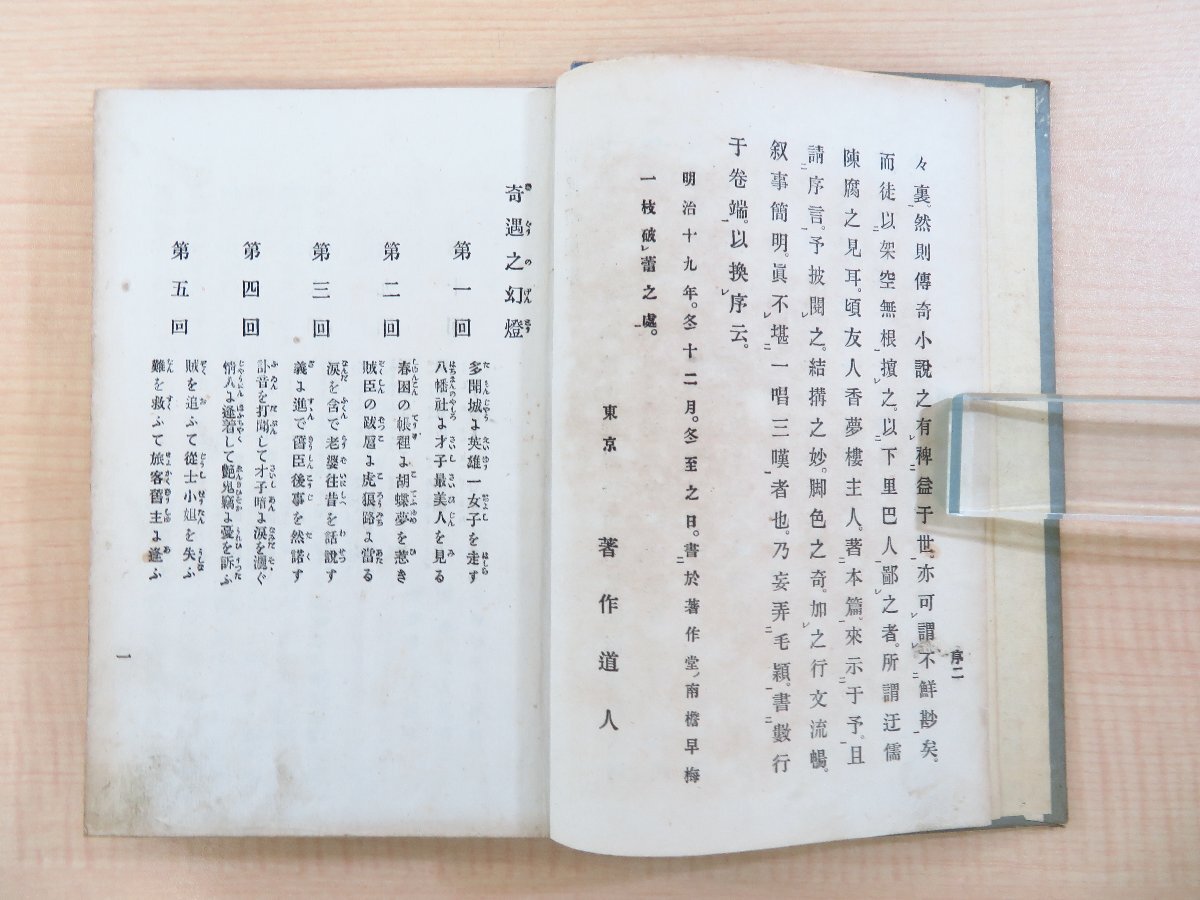 序二
々裏。然則傳奇小說之有裨益于世。亦可謂不鮮尠矣。
而徒以架空無根擯之。以下里巴人鄙之者。所謂迂儒
陳腐之見耳。頃友人香夢樓主人。著本篇。來示于予。且
請序言。予披閱之。結搆之妙。脚色之奇。加之行文流暢。
叙事簡明。眞不堪一唱三嘆者也。乃妄弄毛穎。書數行
于卷端。以換序云。
明治十九年。冬十二月。冬至之日。書於著作堂、南檐早梅
一枝破蕾之處。
東京 著作道人
奇遇之幻燈
第一回
多聞城よ英雄一女子を走す
八幡社よ才子最美人を見る
第二回
春困の帳裡よ胡蝶夢を惹き
賊臣の跋扈よ虎狼路よ當る
第三回
涙を含で老婆往昔を話說す
義よ進で舊臣後事を然諾す
第四回
訃音を打聞して才子暗よ涙を灑ぐ
情人よ逢着して艶鬼竊よ憂を訴ふ
第五回
賊を追ふて從士小妲を失ふ
難を救ふて旅客舊主よ逢ふ
一